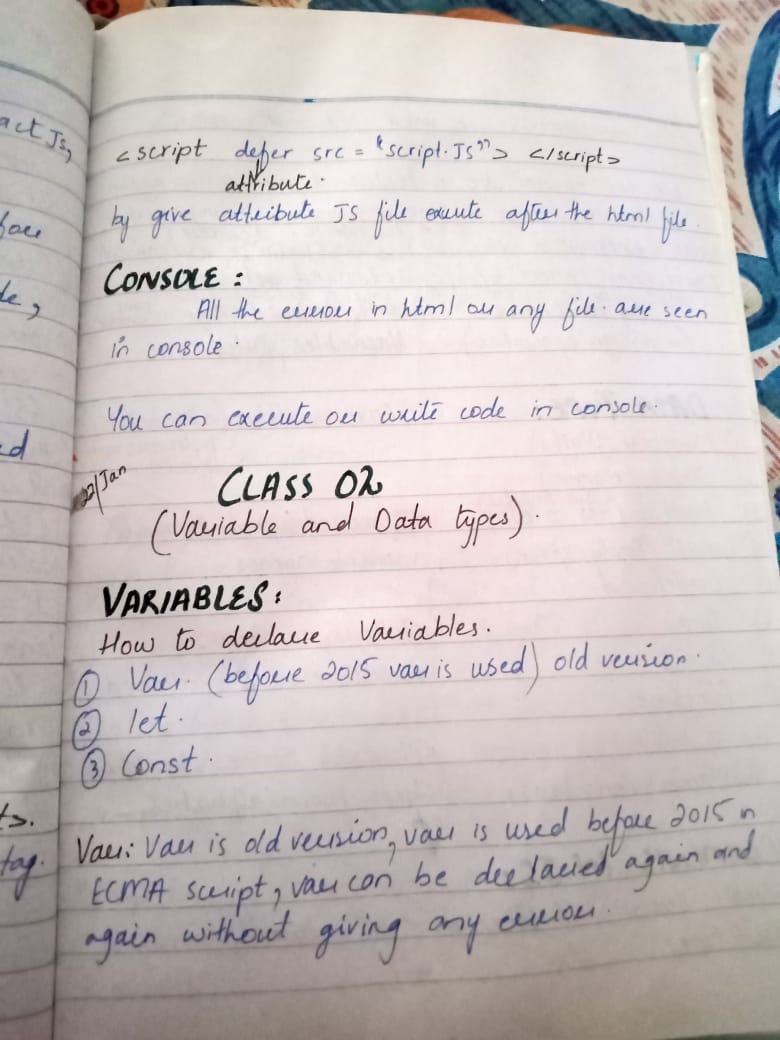 act JS,
<script defer src = "script.JS"> </script>
attribute.
by give attribute JS file exuute after the html file.
CONSOLE :
All the error in html or any file. are seen
in console.
de,
You can execute or write code in console.
ed
22/Jan
CLASS 02
(Variable and Data types).
VARIABLES:
How to declare Variables.
① Var. (before 2015 var is used) old version.
② let.
③ Const.
ts.
tag.
Var: Var is old version, var is used before 2015 n
ECMA script, var can be declared again and
again without giving any error.